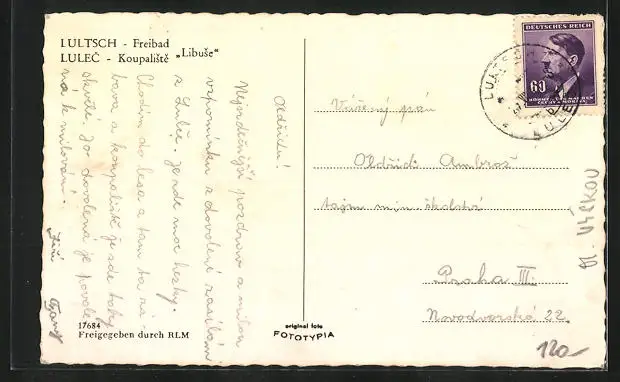 LULTSCH - Freibad
LULEČ - Koupaliště „Libuše“
Oldřichu!
Nejsrdečnější pozdravy a milou
vzpomínku z dovolené zasílám
z Lulče. Je zde moc hezky.
Chodím do lesa a tam ta zá-
bava a koupaliště je zde taky
skvělé. Jo dovolená je
ná k milování.
Jiří
17684
Freigegeben durch RLM
original foto
FOTOTYPIA
DEUTSCHES REICH
60
BÖHMEN UND MÄHREN
ČECHY A MORAVA
LULTSCH
LULEČ
Vážený pán
Oldřich Ambrož
taj. min. školství
Praha III.
Novodvorská 22.
VYŠKOV
120-